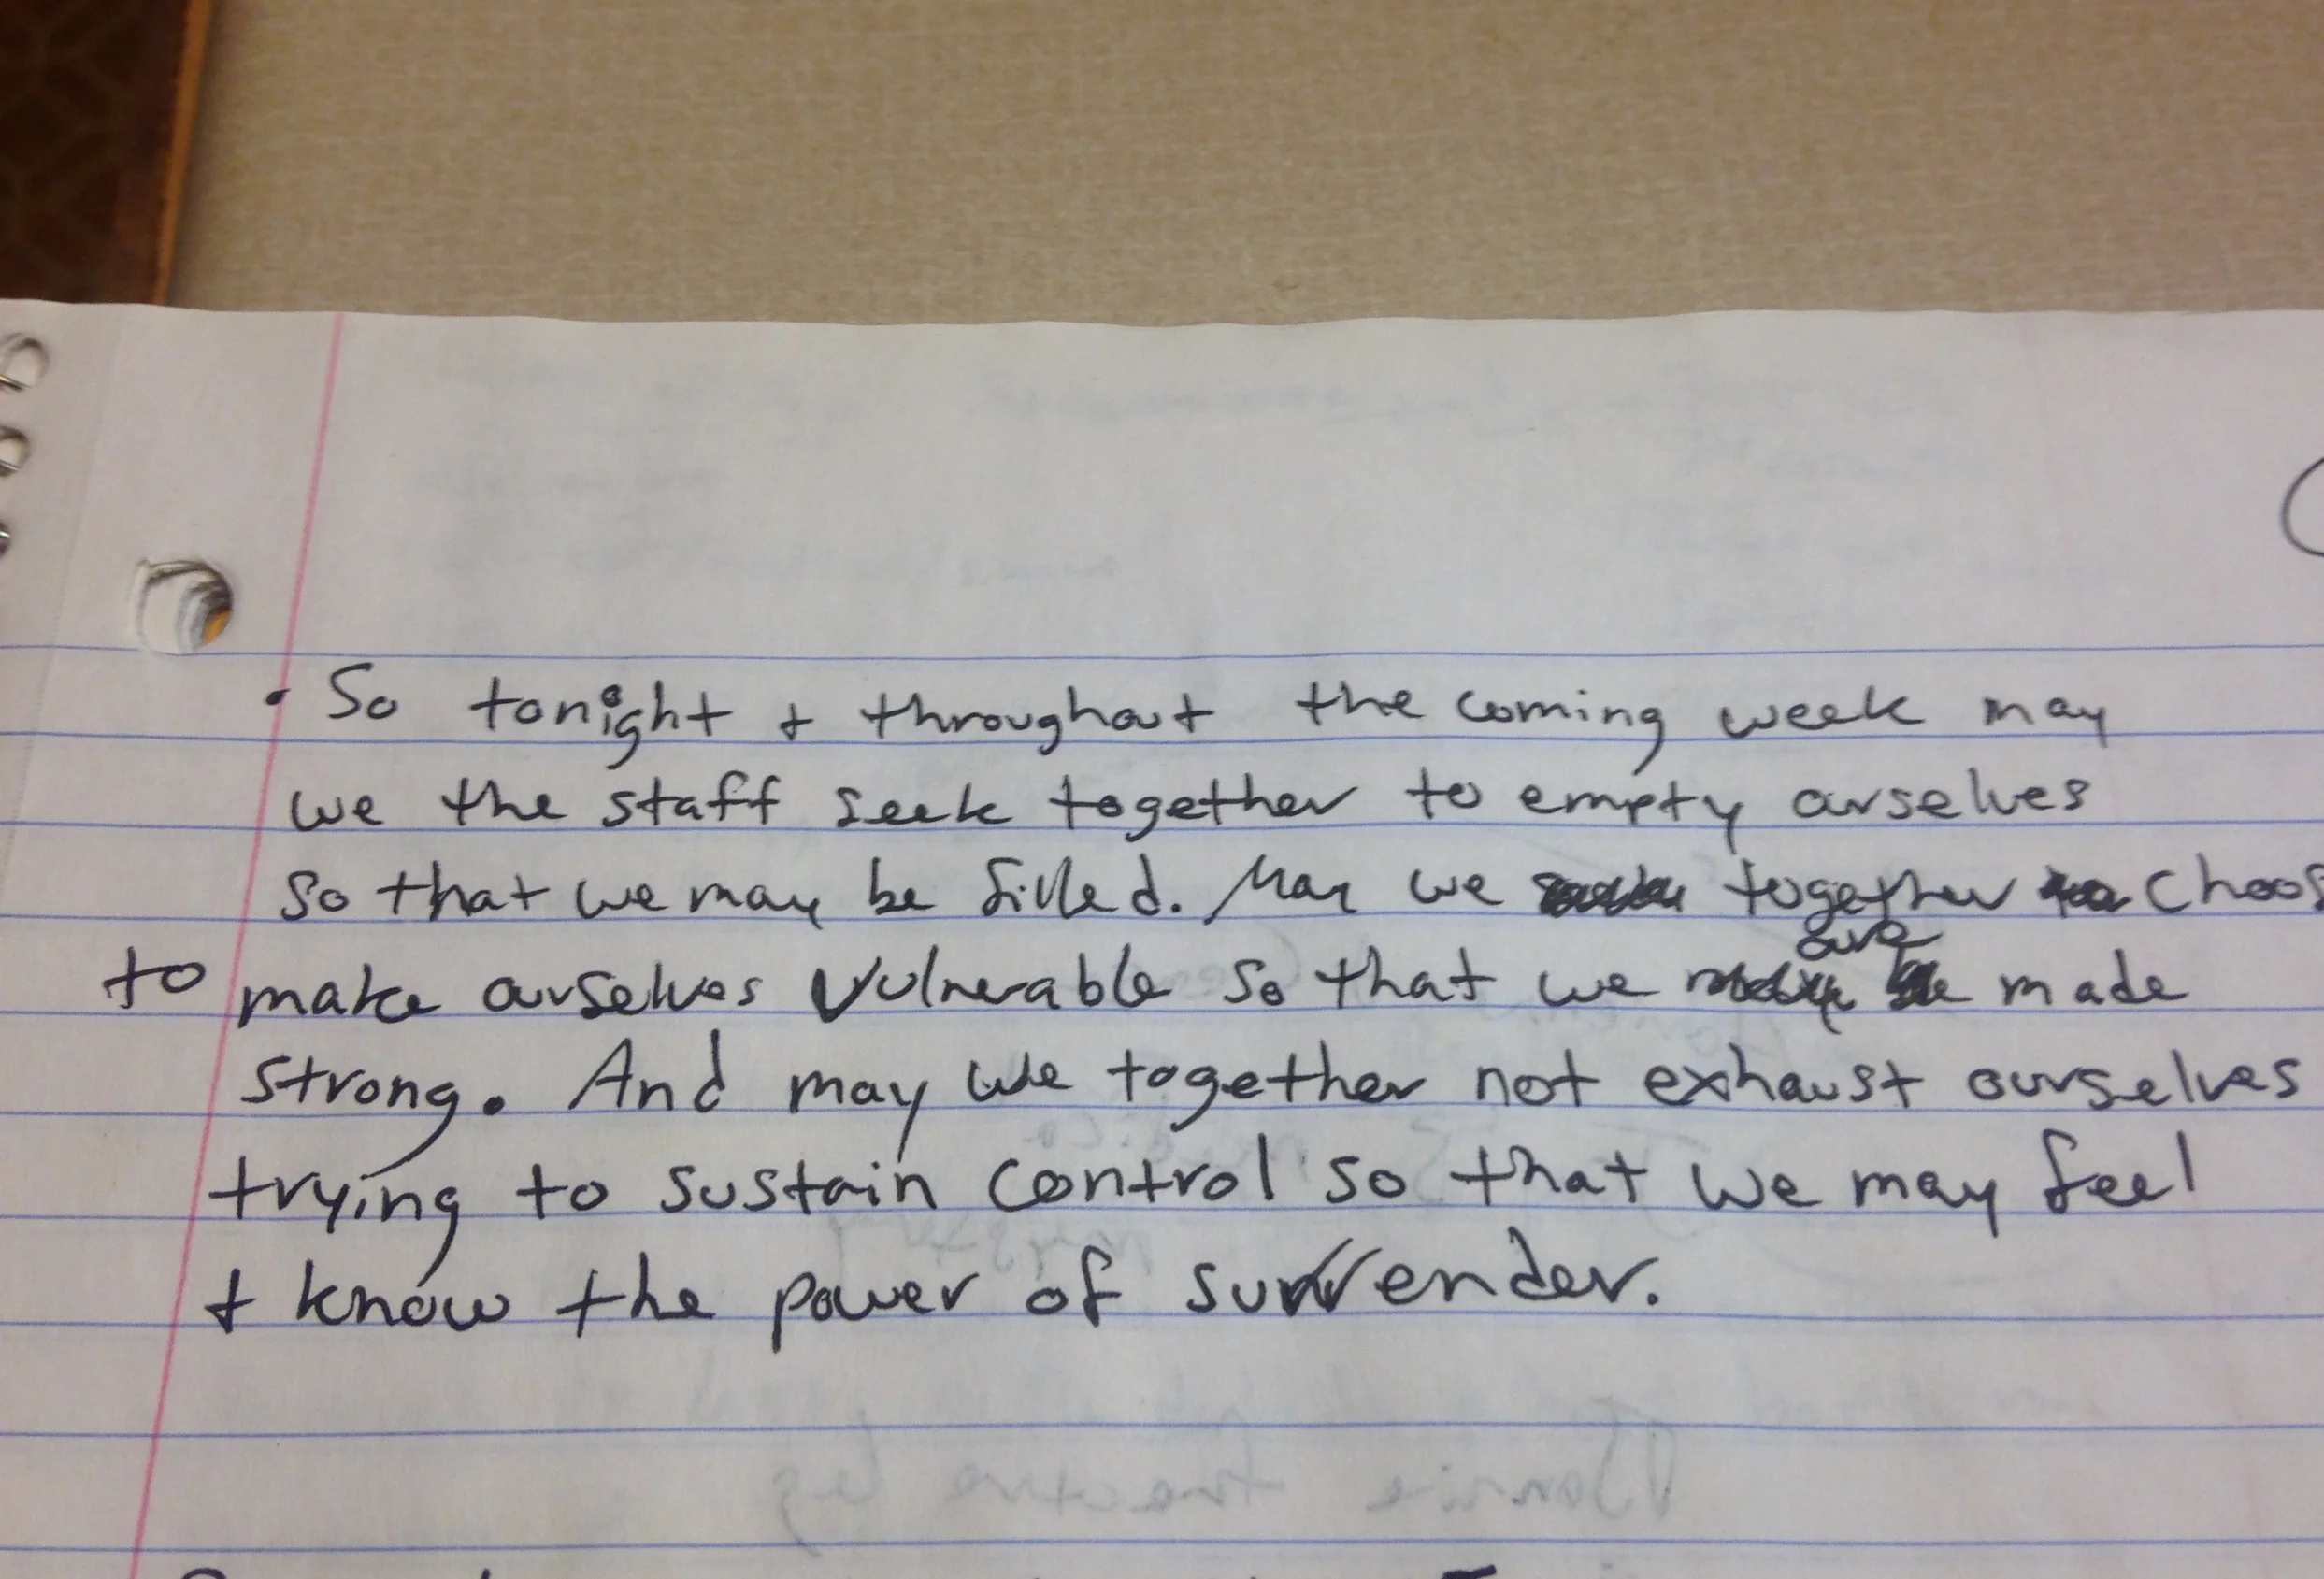 • So tonight + throughout the coming week may
we the staff seek together to empty ourselves
so that we may be filled. May we together choos
to make ourselves vulnerable so that we are made
strong. And may we together not exhaust ourselves
trying to sustain control so that we may feel
+ know the power of surrender.